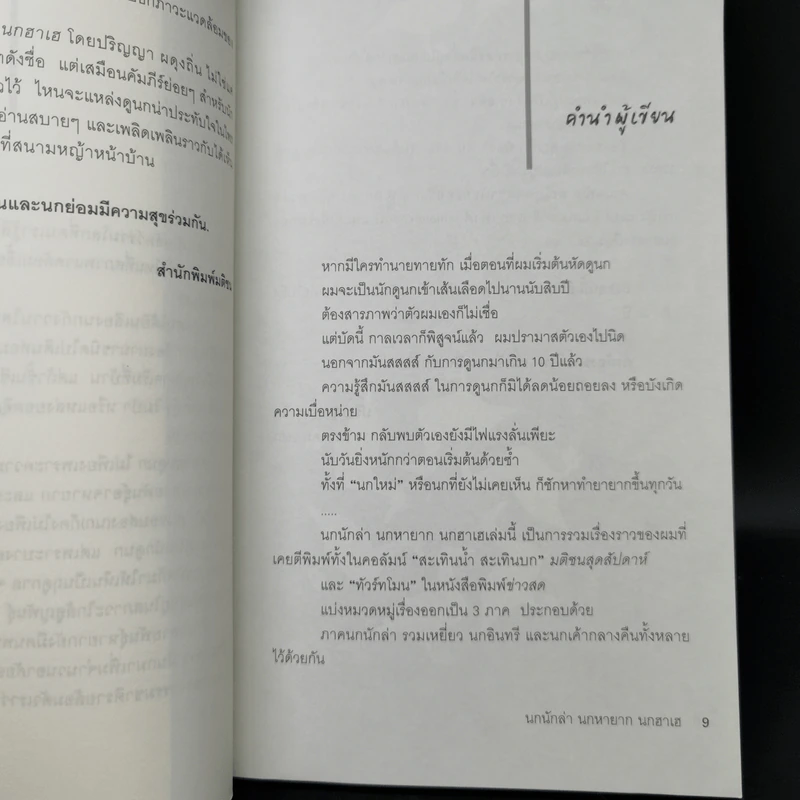 นกฮาเฮ โดยปริญญา ผดุงถิ่น ไม่ใช่แค่
ดังชื่อ แต่เสมือนคัมภีร์ย่อยๆ สำหรับนัก
ไว้ ไหนจะแหล่งดูนกน่าประทับใจในไทย
อ่านสบายๆ และเพลิดเพลินราวกับได้
ที่สนามหญ้าหน้าบ้าน
และนกย่อมมีความสุขร่วมกัน.
สำนักพิมพ์มติชน
คำนำผู้เขียน
หากมีใครทำนายทายทัก เมื่อตอนที่ผมเริ่มต้นหัดดูนก
ผมจะเป็นนักดูนกเข้าเส้นเลือดไปนานนับสิบปี
ต้องสารภาพว่าตัวผมเองก็ไม่เชื่อ
แต่บัดนี้ กาลเวลาก็พิสูจน์แล้ว ผมปรามาสตัวเองไปนิด
นอกจากมันสสสส์ กับการดูนกมาเกิน 10 ปีแล้ว
ความรู้สึกมันสสสส์ ในการดูนกก็มิได้ลดน้อยถอยลง หรือบังเกิด
ความเบื่อหน่าย
ตรงข้าม กลับพบตัวเองยังมีไฟแรงลั่นเพียะ
นับวันยิ่งหนักกว่าตอนเริ่มต้นด้วยซ้ำ
ทั้งที่ “นกใหม่” หรือนกที่ยังไม่เคยเห็น ก็ชักหาทำยายากขึ้นทุกวัน
.....
นกนักล่า นกหายาก นกฮาเฮเล่มนี้ เป็นการรวมเรื่องราวของผมที่
เคยตีพิมพ์ทั้งในคอลัมน์ “สะเทินน้ำ สะเทินบก” มติชนสุดสัปดาห์
และ “ทัวร์ทโมน” ในหนังสือพิมพ์ข่าวสด
แบ่งหมวดหมู่เรื่องออกเป็น 3 ภาค ประกอบด้วย
ภาคนกนักล่า รวมเหยี่ยว นกอินทรี และนกเค้ากลางคืนทั้งหลาย
ไว้ด้วยกัน
นกนักล่า นกหายาก นกฮาเฮ 9